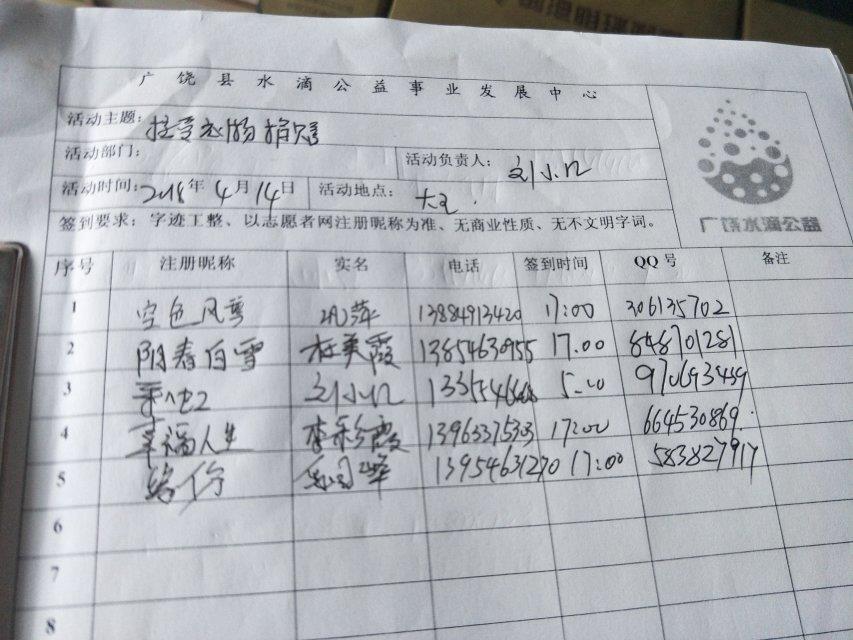 广饶县水滴公益事业发展中心
活动主题: 接受衣物捐赠
活动部门:
活动负责人: 刘小红
活动时间: 2018年4月14日 活动地点: 大王
签到要求: 字迹工整、以志愿者网注册昵称为准、无商业性质、无不文明字词。
广饶水滴公益
序号 注册昵称 实名 电话 签到时间 QQ号 备注
1 空色风雪 萍 13884913420 17:00 306135702
2 阳春白雪 杜美霞 13854630955 17.00 848701281
3 刘小红
4 幸福人生 李彩霞 13963375303 17:00 664530869
5 缘份 13954631270 17:00 583827917
6
7
8